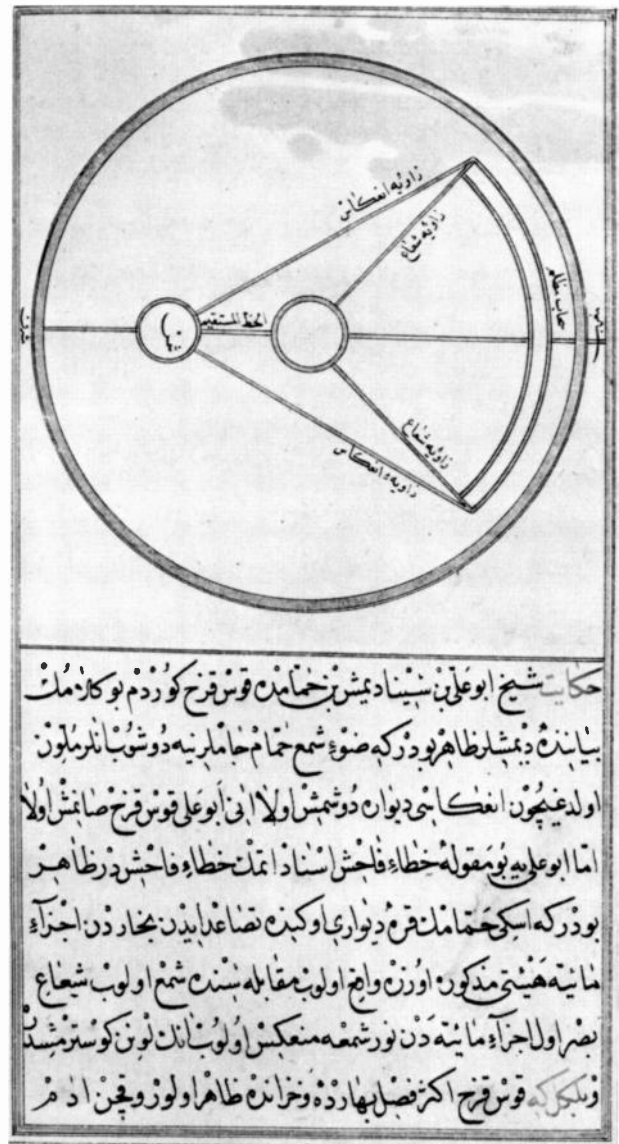 زاویه انعکاس
زاویه شعاع
سحاب مظلم
الخط المستقیم
زاویه شعاع
زاویه انعکاس
حکایت شیخ ابو علی بن سینا دیمش بن حمامده قوس قزح کوردم بو کلامڭ
بیاننده دیمشلر ظاهر بودرکه ضوء شمع حمام جاملرینه دوشوب انلر ملون
اولدغیچون انعکاسی دیواره دوشمش اولا انی ابو علی قوس قزح صانمش اولا
اما ابو علی یه بو مقوله خطاء فاحش اسناد اتمك خطاء فاحش در ظاهر
بودرکه اسکی حمامك قره دیواری اوکنده تصاعد ایدن بخاردن اجزاء
مائیه هیئتی مذکور اوزره واقع اولوب مقابله سنده شمع اولوب شعاع
بصر اول اجزاء مائیه دن نور شمعه منعکس اولوب انك لونن کوسترمشدر
وبلکل که قوس قزح اکثر فصل بهارده وخزانده ظاهر اولور وقچن ادم